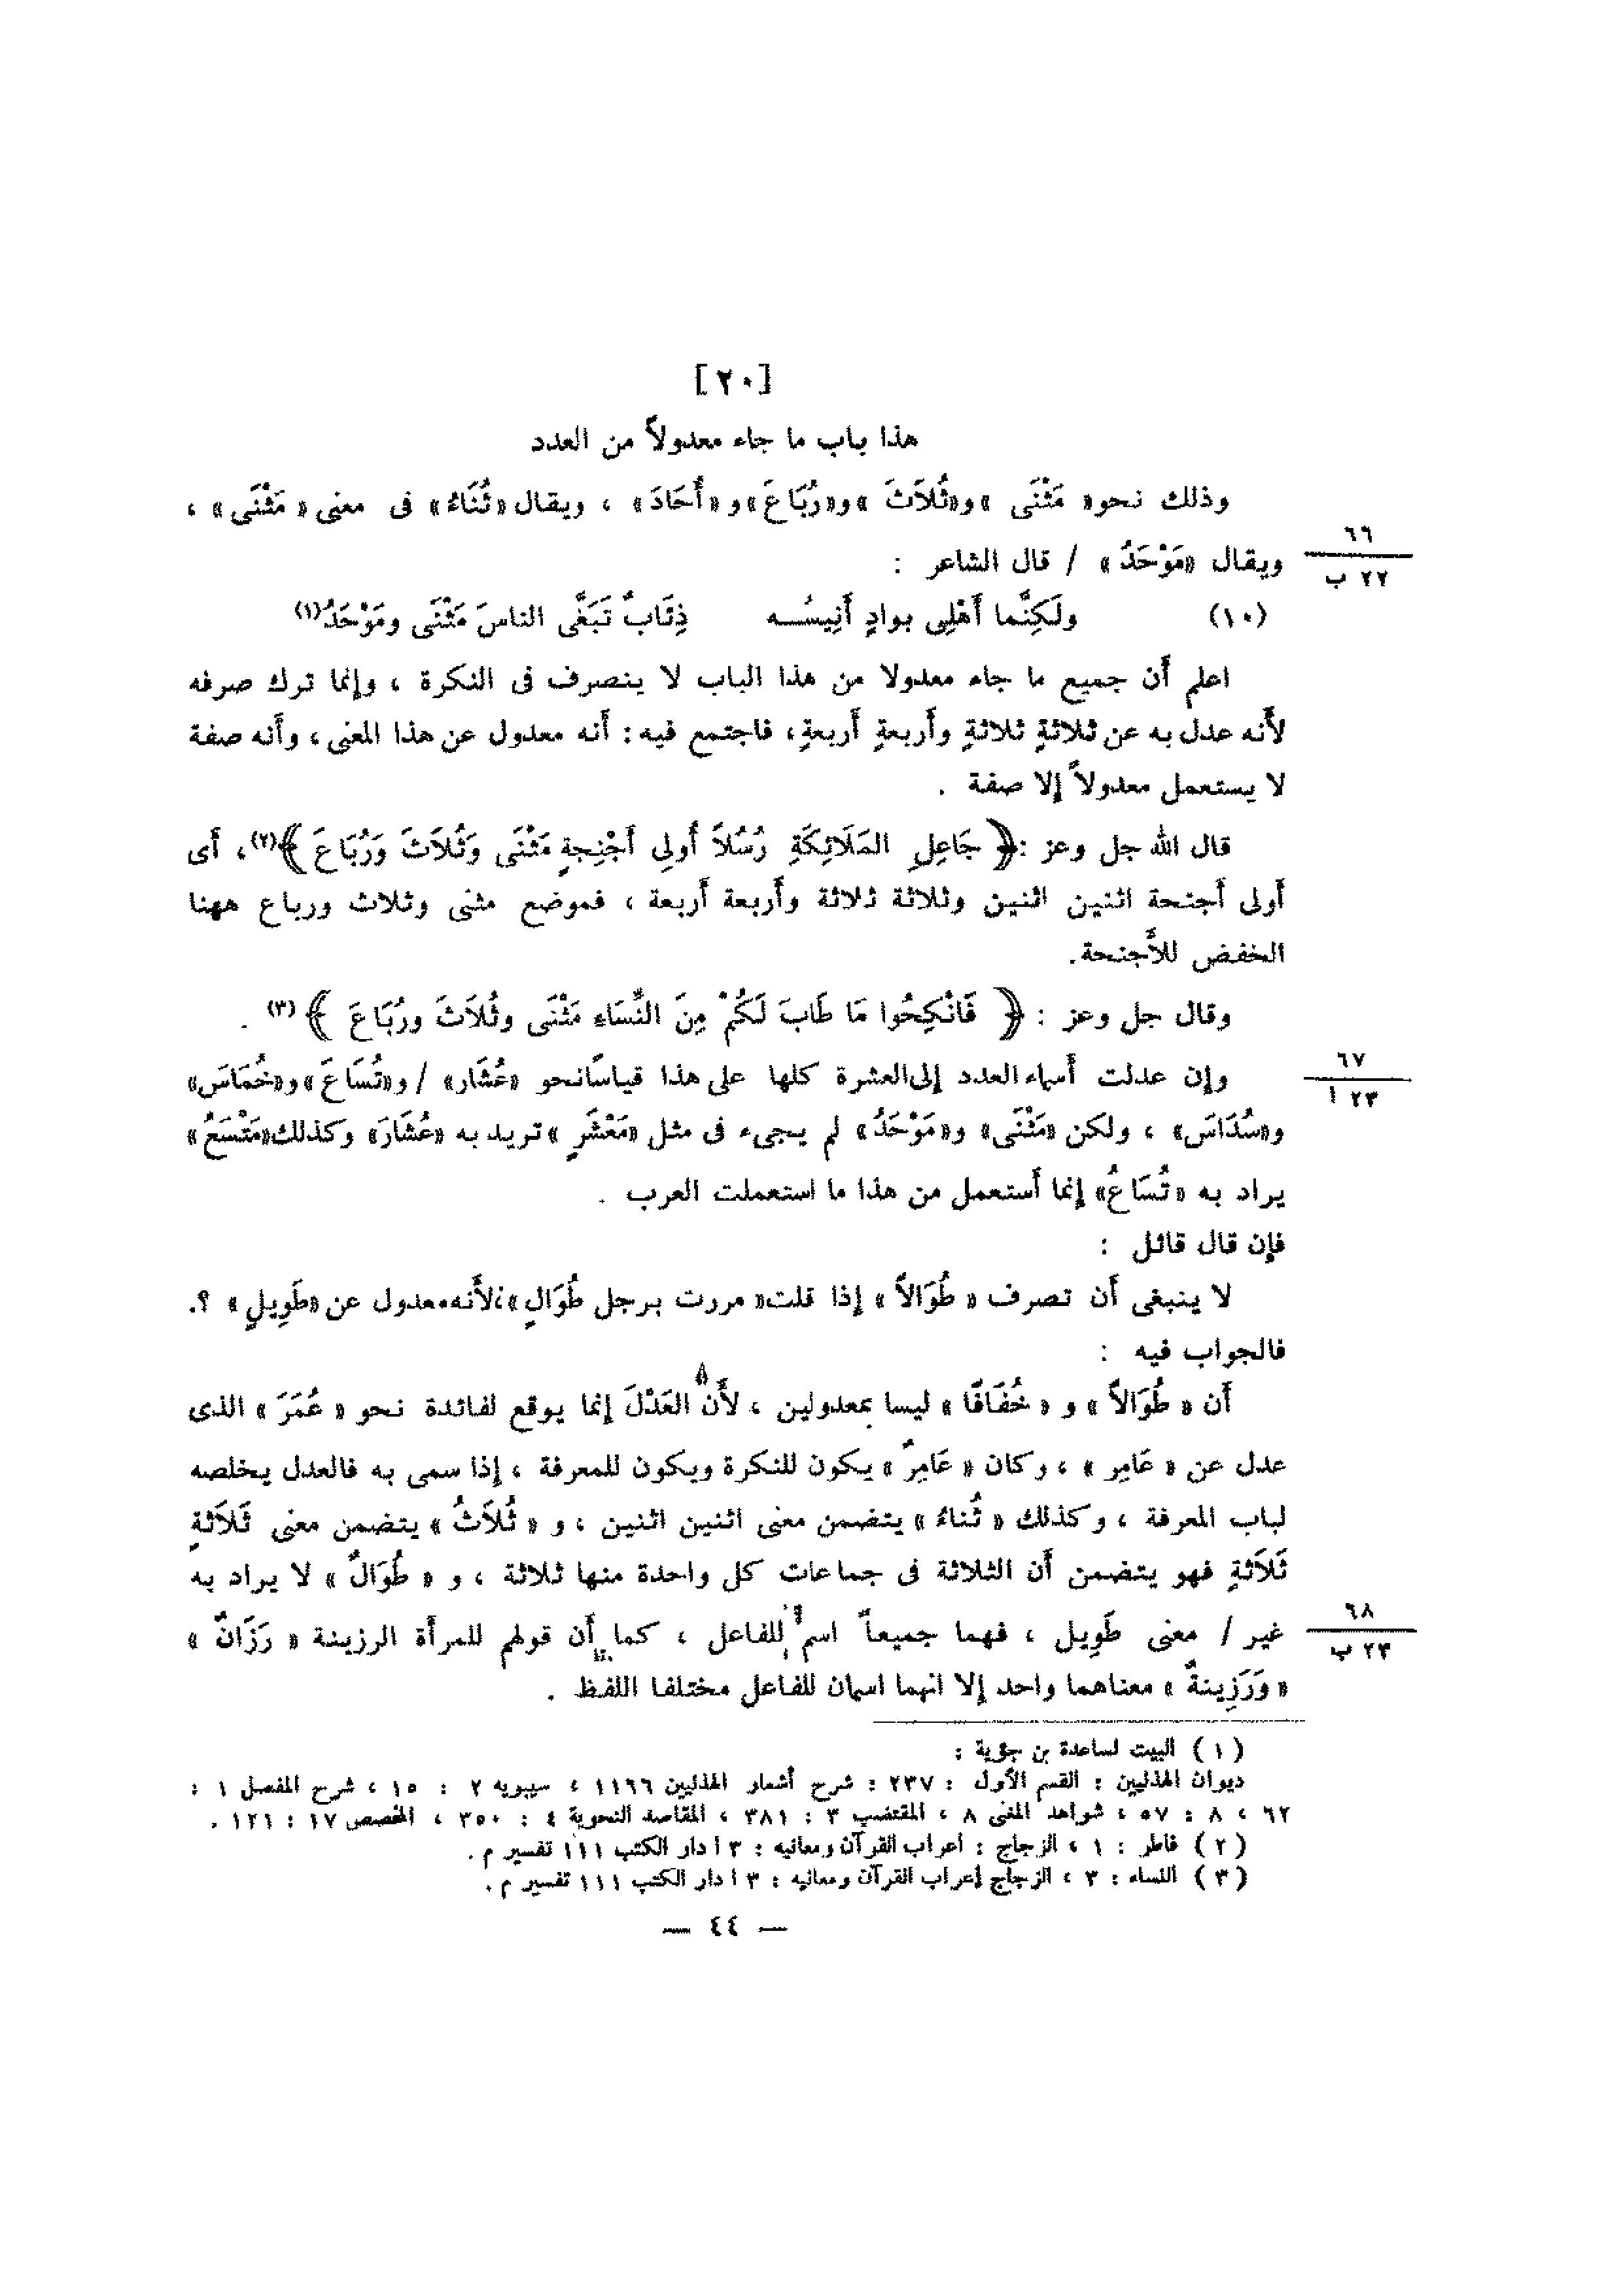 [٢٠]
هذا باب ما جاء معدولاً من العدد
وذلك نحو« مَثْنَى » و«ثُلاَثَ » و«رُبَاعَ» و «أُحَادَ» ، ويقال «ثُنَاءُ» فى معنى « مَثْنَى » ،
ويقال «مَوْحَدُ» / قال الشاعر :
٦٦
٢٢ ب
(١٠) ولَكِنَّما أَهْلِى بوادٍ أَنِيسُـــه ذِئَابٌ تَبَغَّى الناسَ مَثْنَى ومَوْحَدُ(١)
اعلم أَن جميع ما جاء معدولا من هذا الباب لا ينصرف فى النكرة ، وإنما ترك صرفه
لأَنه عدل به عن ثلاثةٍ ثلاثةٍ وأَربعةٍ أَربعةٍ، فاجتمع فيه : أَنه معدول عن هذا المعنى ، وأَنه صفة
لا يستعمل معدولاً إلا صفة .
قال الله جل وعز :﴿ جَاعِلِ المَلَائِكَةِ رُسُلاً أُولِى أَجْنِحةٍ مَثْنَى وَثُلاَثَ وَرُبَاعَ ﴾(٢)، أَى
أُولى أَجنحة اثنين اثنين وثلاثة ثلاثة وأَربعة أَربعة ، فموضع مثنى وثلاث ورباع ههنا
الخفض للأَجنحة.
وقال جل وعز : ﴿ فَانْكِحُوا مَا طَابَ لَكُمْ مِنَ النِّسَاءِ مَثْنَى وثُلاَثَ ورُبَاعَ ﴾ (٣) .
وإن عدلت أَسماء العدد إلى العشرة كلها على هذا قياسًا نحو «عُشَار» / و«تُسَاعَ» و«خُمَاسَ»
٦٧
٢٣ ا
و«سُدَاسَ» ، ولكن «مَثْنَى» و«مَوْحَدُ» لم يجىء فى مثل «مَعْشَرٍ » تريد به «عُشَارَ» وكذلك «مَتْسَعُ»
يراد به «تُسَاعُ» إنما أَستعمل من هذا ما استعملت العرب .
فإن قال قائل :
لا ينبغى أَن تصرف « طُوَالاً » إذا قلت « مررت برجل طُوَالٍ »؛ لأَنه معدول عن «طَوِيلٍ » ؟.
فالجواب فيه :
أَن « طُوَالاً » و « خُفَافًا » ليسا بمعدولين ، لأَن العَدْلَ إنما يوقع لفائدة نحو « عُمَرَ » الذى
عدل عن « عَامِر » ، وكان « عَامِرٌ » يكون للنكرة ويكون للمعرفة ، إذا سمى به فالعدل يخلصه
لباب المعرفة ، وكذلك « ثُناءُ » يتضمن معنى اثنين اثنين ، و « ثُلاَثُ » يتضمن معنى ثَلاَثةٍ
ثَلاَثةٍ فهو يتضمن أَن الثلاثة فى جماعات كل واحدة منها ثلاثة ، و « طُوَالٌ » لا يراد به
غير / معنى طَوِيل ، فهما جميعاً اسم للفاعل ، كما أَن قولهم للمرأَة الرزينة « رَزَانٌ »
٦٨
٢٣ ب
« ورَزِينةٌ » معناهما واحد إلا انهما اسمان للفاعل مختلفا اللفظ .
( ١ ) البيت لساعدة بن جؤية :
ديوان الهذليين : القسم الأول : ٢٣٧ : شرح أشعار الهذليين ١١٦٦ ، سيبويه ٢ : ١٥ ، شرح المفصل ١ :
٦٢ ، ٨ : ٥٧ ، شواهد المغنى ٨ ، المقتضب ٣ : ٣٨١ ، المقاصد النحوية ٤ : ٣٥٠ ، المخصص ١٧ : ١٢١ .
( ٢ ) فاطر : ١ ، الزجاج : اعراب القرآن ومعانيه : ٣ ا دار الكتب ١١١ تفسير م .
( ٣ ) النساء : ٣ ، الزجاج إعراب القرآن ومعانيه : ٣ ا دار الكتب ١١١ تفسير م .
— ٤٤ —